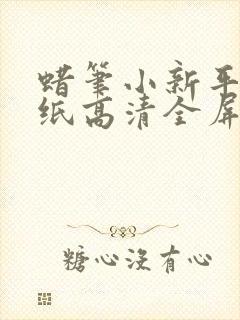 蜡笔小新平
纸高清全屏
糖心没有心